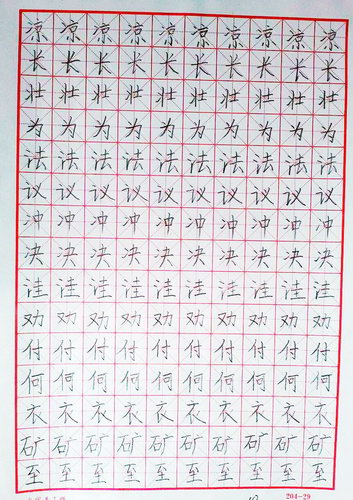 凉凉凉凉凉凉凉凉凉凉
长长长长长长长长长长
壮壮壮壮壮壮壮壮壮壮
为为为为为为为为为为
法法法法法法法法法法
议议议议议议议议议议
冲冲冲冲冲冲冲冲冲冲
决决决决决决决决决决
洼洼洼洼洼洼洼洼洼洼
劝劝劝劝劝劝劝劝劝劝
付付付付付付付付付付
何何何何何何何何何何
衣衣衣衣衣衣衣衣衣衣
矿矿矿矿矿矿矿矿矿矿
至至至至至至至至至至
204-29